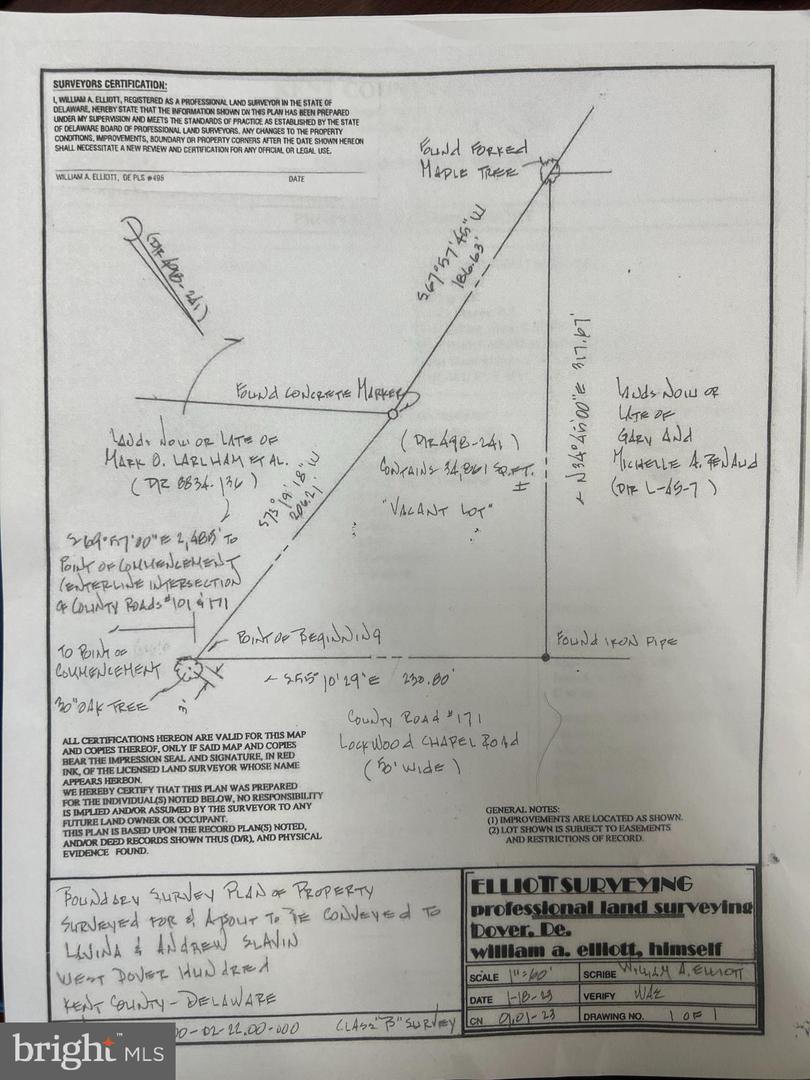 SURVEYORS CERTIFICATION:
I, WILLIAM A. ELLIOTT, REGISTERED AS A PROFESSIONAL LAND SURVEYOR IN THE STATE OF
DELAWARE, HEREBY STATE THAT THE INFORMATION SHOWN ON THIS PLAN HAS BEEN PREPARED
UNDER MY SUPERVISION AND MEETS THE STANDARDS OF PRACTICE AS ESTABLISHED BY THE STATE
OF DELAWARE BOARD OF PROFESSIONAL LAND SURVEYORS. ANY CHANGES TO THE PROPERTY
CONDITIONS, IMPROVEMENTS, BOUNDARY OR PROPERTY CORNERS AFTER THE DATE SHOWN HEREON
SHALL NECESSITATE A NEW REVIEW AND CERTIFICATION FOR ANY OFFICIAL OR LEGAL USE.
WILLIAM A. ELLIOTT, DE PLS #498 DATE
FOUND FORKED
MAPLE TREE
(D/R 498-241)
S67°57'45"W
186.63'
FOUND CONCRETE MARKER
N34°45'00"E 317.67'
LANDS NOW OR
LATE OF
GARY AND
MICHELLE A. BENAUD
(D/R L-45-7)
LANDS NOW OR LATE OF
MARK O. LARLHAM ET AL.
(D/R 8834-136)
(D/R 498-241)
CONTAINS 34,861 SQ.FT.
±
"VACANT LOT"
S73°19'18"W
206.21'
S69°57'00"E 2,485' TO
POINT OF COMMENCEMENT
CENTERLINE INTERSECTION
OF COUNTY ROADS #101 & 171
POINT OF BEGINNING
TO POINT OF
COMMENCEMENT
FOUND IRON PIPE
30" OAK TREE
3'
S55°10'29"E 230.80'
COUNTY ROAD #171
LOCKWOOD CHAPEL ROAD
(50' WIDE)
ALL CERTIFICATIONS HEREON ARE VALID FOR THIS MAP
AND COPIES THEREOF, ONLY IF SAID MAP AND COPIES
BEAR THE IMPRESSION SEAL AND SIGNATURE, IN RED
INK, OF THE LICENSED LAND SURVEYOR WHOSE NAME
APPEARS HEREON.
WE HEREBY CERTIFY THAT THIS PLAN WAS PREPARED
FOR THE INDIVIDUAL(S) NOTED BELOW, NO RESPONSIBILITY
IS IMPLIED AND/OR ASSUMED BY THE SURVEYOR TO ANY
FUTURE LAND OWNER OR OCCUPANT.
THIS PLAN IS BASED UPON THE RECORD PLAN(S) NOTED,
AND/OR DEED RECORDS SHOWN THUS (D/R), AND PHYSICAL
EVIDENCE FOUND.
GENERAL NOTES:
(1) IMPROVEMENTS ARE LOCATED AS SHOWN.
(2) LOT SHOWN IS SUBJECT TO EASEMENTS
AND RESTRICTIONS OF RECORD.
BOUNDARY SURVEY PLAN OF PROPERTY
SURVEYED FOR & ABOUT TO BE CONVEYED TO
LAVINA & ANDREW SLAVIN
WEST DOVER HUNDRED
KENT COUNTY - DELAWARE
00-02-22.00-000 CLASS "B" SURVEY
ELLIOTT SURVEYING
professional land surveying
Dover, De.
william a. elliott, himself
SCALE 1"=60' SCRIBE WILLIAM A. ELLIOTT
DATE 1-18-23 VERIFY WAE
CN 9.01-23 DRAWING NO. 1 OF 1
bright MLS